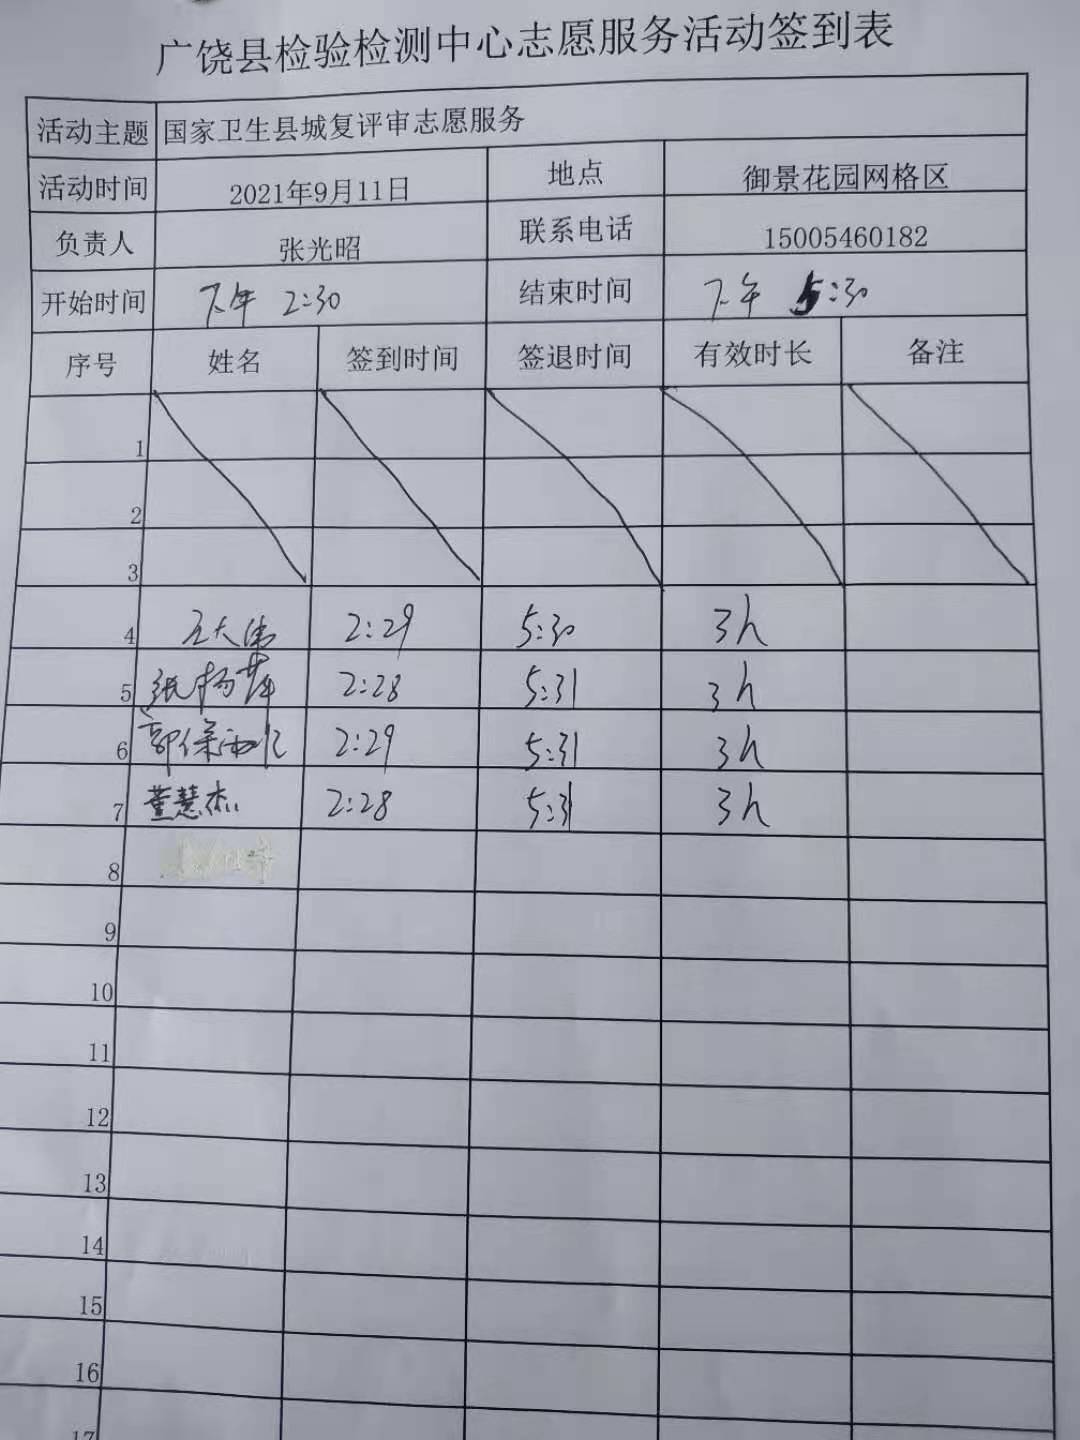 广饶县检验检测中心志愿服务活动签到表
活动主题 国家卫生县城复评审志愿服务
活动时间 2021年9月11日 地点 御景花园网格区
负责人 张光昭 联系电话 15005460182
开始时间 下午 2:30 结束时间 下午 5:30
序号 姓名 签到时间 签退时间 有效时长 备注
1
2
3
4 2:29 5:30 3h
5 2:28 5:31 3h
6 2:29 5:31 3h
7 董慧杰 2:28 5:31 3h
8
9
10
11
12
13
14
15
16
17